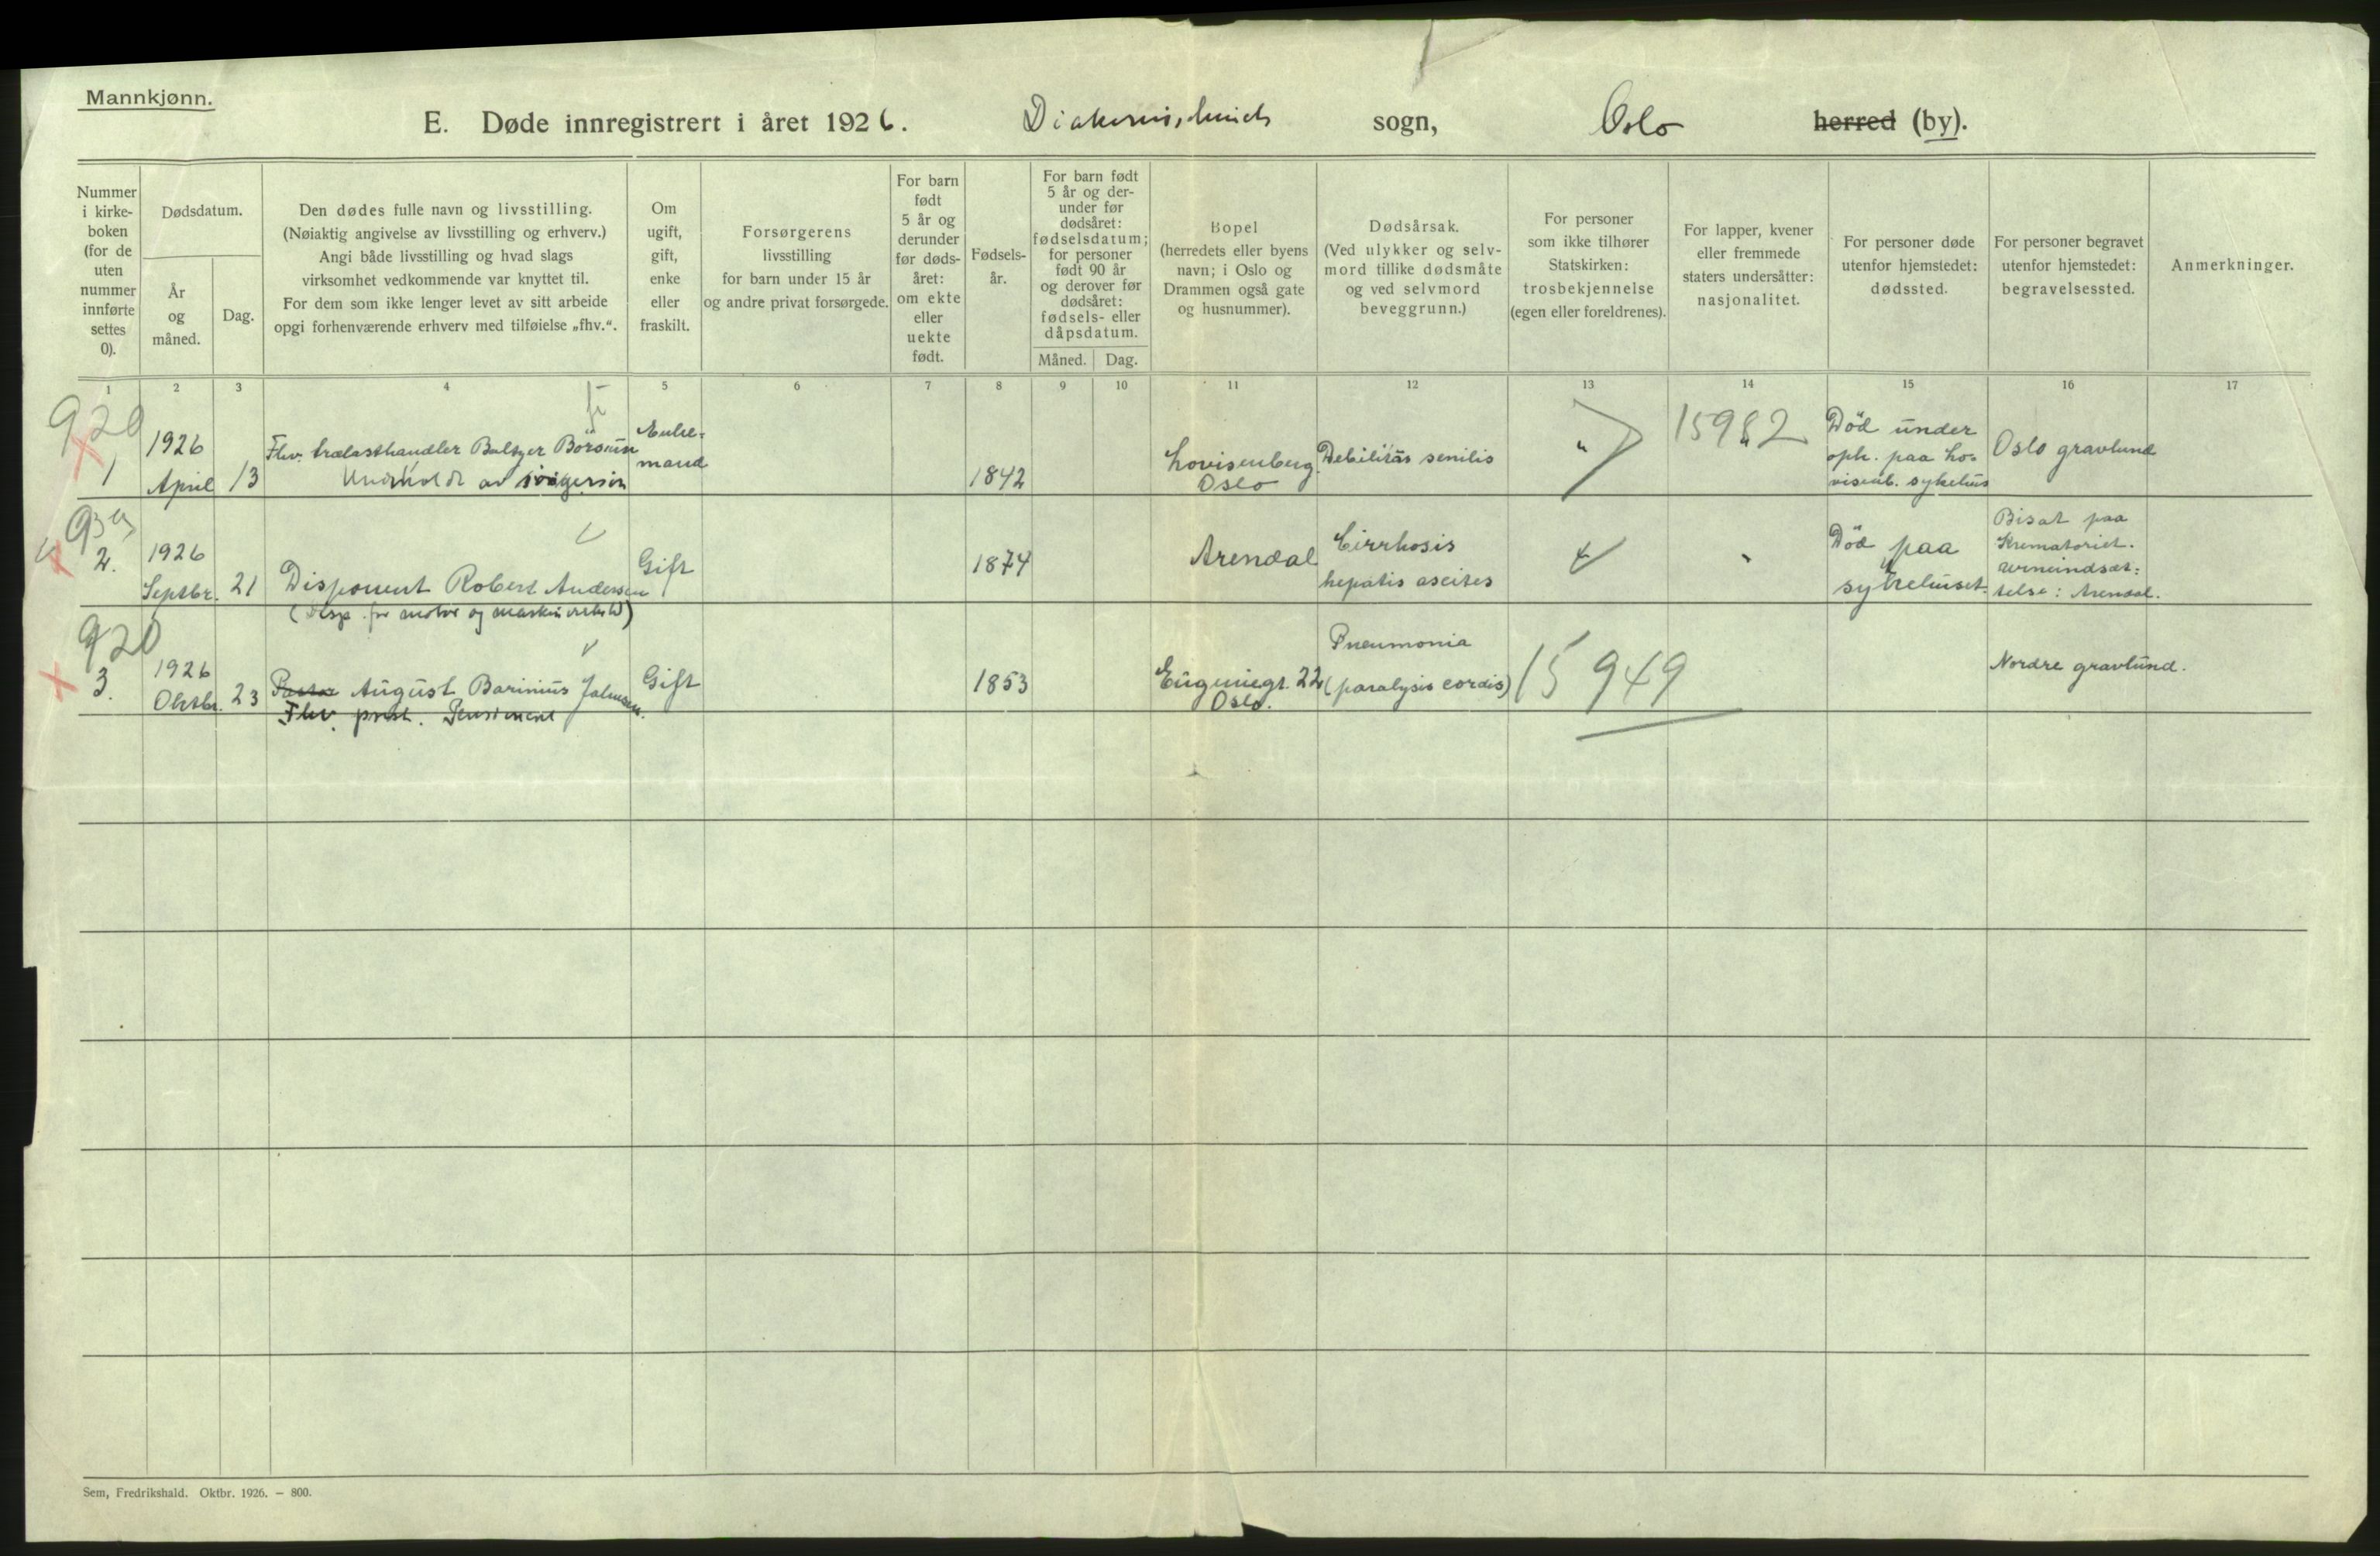 Mannkjønn.
E. Døde innregistrert i året 1926. sogn, Oslo herred (by).
Nummer
i kirke-
boken
(for de
uten
nummer
innførte
settes
0).
Dødsdatum.
År
og
måned.
Dag.
Den dødes fulle navn og livsstilling.
(Nøiaktig angivelse av livsstilling og erhverv.)
Angi både livsstilling og hvad slags
virksomhet vedkommende var knyttet til.
For dem som ikke lenger levet av sitt arbeide
opgi forhenværende erhverv med tilføielse „fhv.“.
Om
ugift,
gift,
enke
eller
fraskilt.
Forsørgerens
livsstilling
for barn under 15 år
og andre privat forsørgede.
For barn
født
5 år og
derunder
før døds-
året:
om ekte
eller
uekte
født.
Fødsels-
år.
For barn født
5 år og der-
under før
dødsåret:
fødselsdatum;
for personer
født 90 år
og derover før
dødsåret:
fødsels- eller
dåpsdatum.
Måned.
Dag.
Bopel
(herredets eller byens
navn; i Oslo og
Drammen også gate
og husnummer).
Dødsårsak.
(Ved ulykker og selv-
mord tillike dødsmåte
og ved selvmord
beveggrunn.)
For personer
som ikke tilhører
Statskirken:
trosbekjennelse
(egen eller foreldrenes).
For lapper, kvener
eller fremmede
staters undersåtter:
nasjonalitet.
For personer døde
utenfor hjemstedet:
dødssted.
For personer begravet
utenfor hjemstedet:
begravelsessted.
Anmerkninger.
1 2 3 4 5 6 7 8 9 10 11 12 13 14 15 16 17
920
1
1926
April 13
Fhv. trælasthandler Baltzer Börsum
av svigersön
Enke-
mand
1842
Lovisenberg
Oslo
Debilitas senilis
"
15982
"
Död under
oph. paa Lo-
visenb. sykehus
Oslo gravlund
2.
1926
Septbr. 21
Disponent Robert Andersen
(Disp. for motor og maskin)
Gift
1874
Arendal
Cirrhosis
hepatis ascites
Död paa
sykehuset.
Bisat paa
Krematoriet.
urnenedsæt-
telse: Arendal.
920
3.
1926
Oktbr. 23
Pastor August Barinius
Fhv. prest. Pensionert
Gift
1853
Eugeniegt. 22
Oslo.
Pneumonia
(paralysis cordis)
15949
Nordre gravlund.
Sem, Fredrikshald. Oktbr. 1926. — 800.